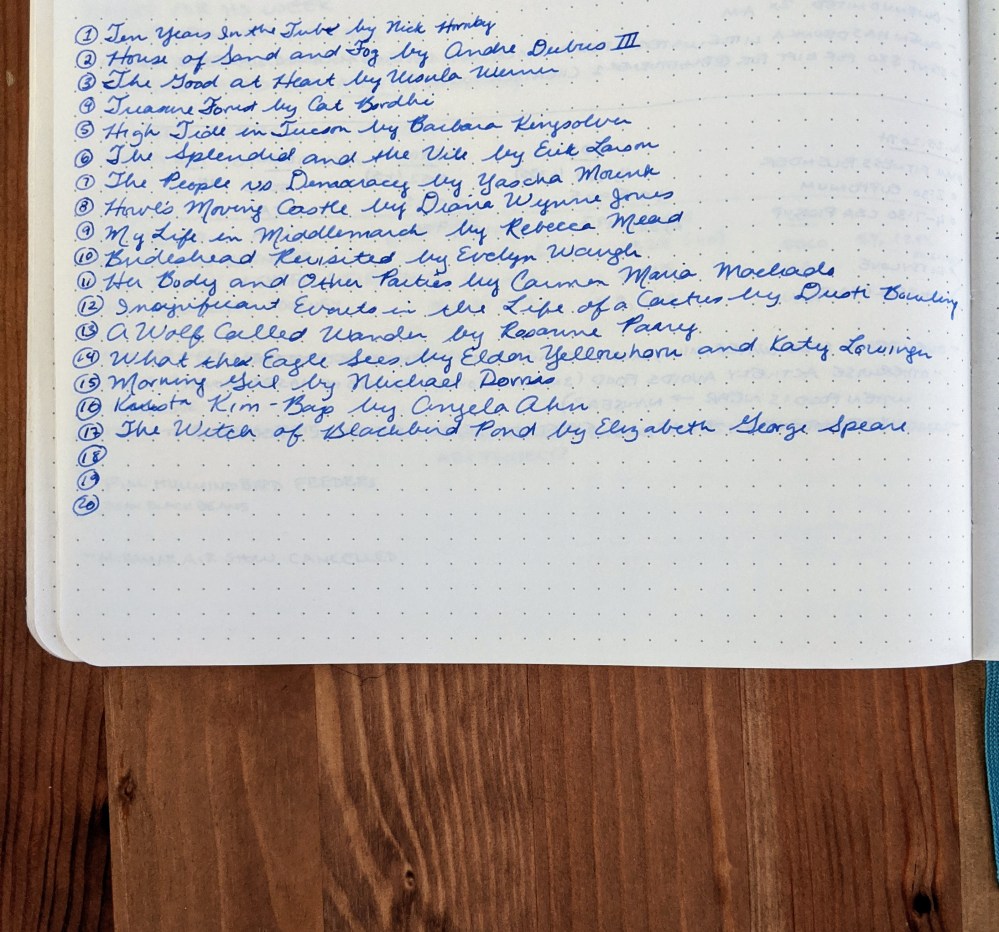 ① Ten Years In the Tub by Nick Hornby
② House of Sand and Fog by Andre Dubus III
③ The Good at Heart by Ursula Werner
④ Treasure Forest by Cat Bordhi
⑤ High Tide in Tucson by Barbara Kingsolver
⑥ The Splendid and the Vile by Erik Larson
⑦ The People vs Democracy by Yascha Mounk
⑧ Howl's Moving Castle by Diana Wynne Jones
⑨ My Life in Middlemarch by Rebecca Mead
⑩ Brideshead Revisited by Evelyn Waugh
⑪ Her Body and Other Parties by Carmen Maria Machado
⑫ Insignificant Events in the Life of a Cactus by Dusti Bowling
⑬ A Wolf Called Wander by Rosanne Parry
⑭ What the Eagle Sees by Eldon Yellowhorn and Kathy Lowinger
⑮ Morning Girl by Michael Dorris
⑯ Krista Kim-Bap by Angela Ahn
⑰ The Witch of Blackbird Pond by Elizabeth George Speare
⑱
⑲
⑳